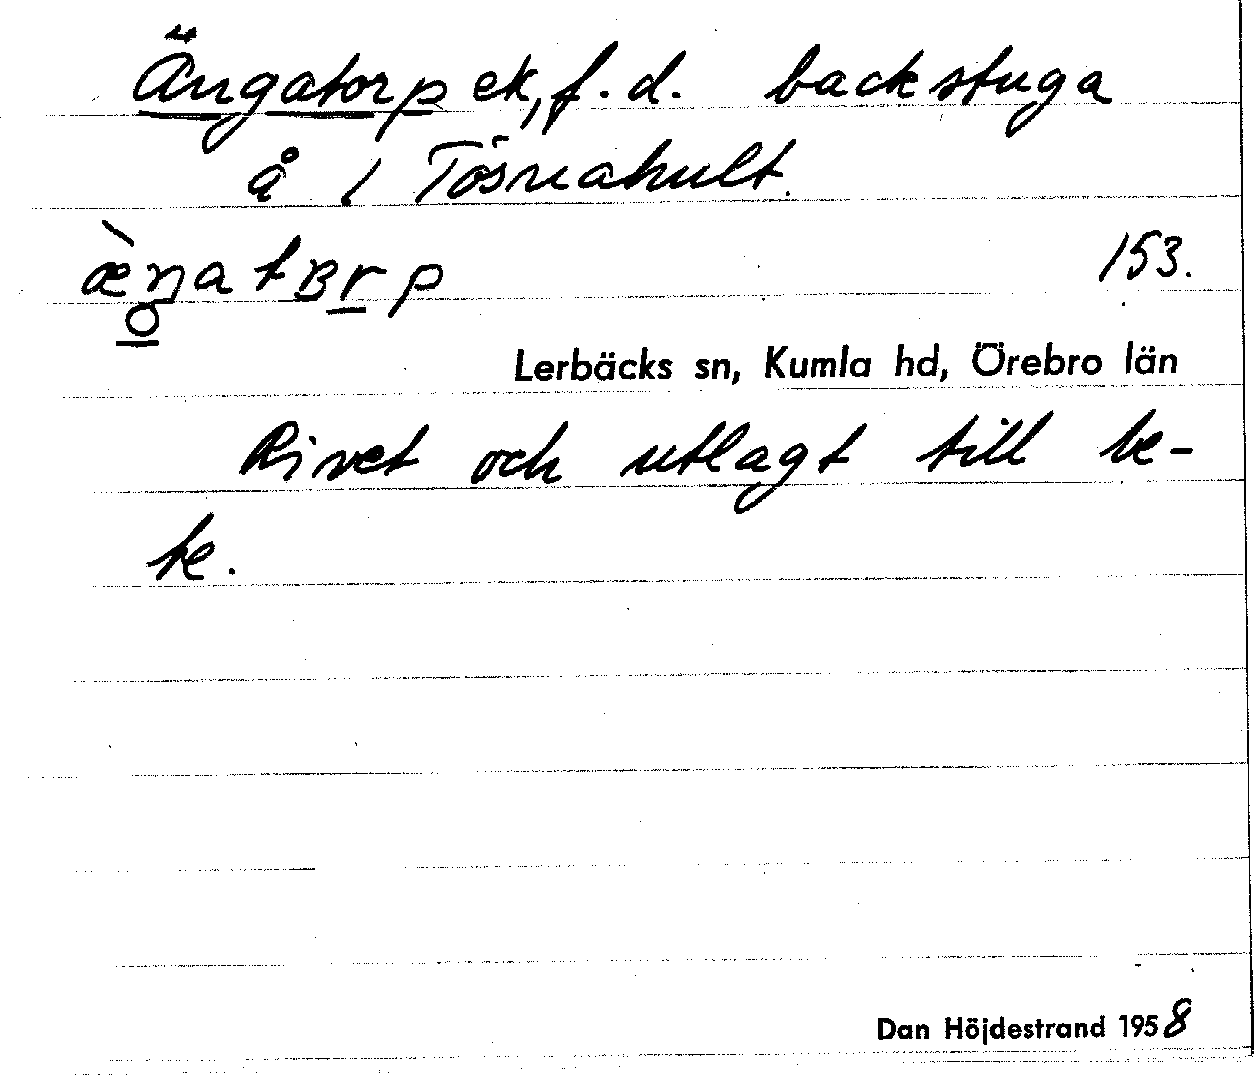 Ängatorp ek, f. d. backstuga
å 1 Tösnahult.
æ̀ŋatBrp 153.
Lerbäcks sn, Kumla hd, Örebro län
Rivet och utlagt till be-
te.
Dan Höjdestrand 1958